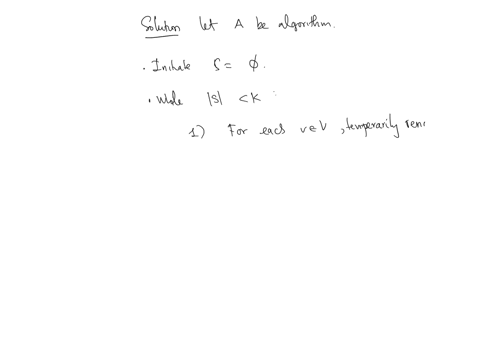 Solution let A be algorithm.
. Initiate S = ϕ.
. While |S| < K :
1) For each v ∈ V , temporarily rem